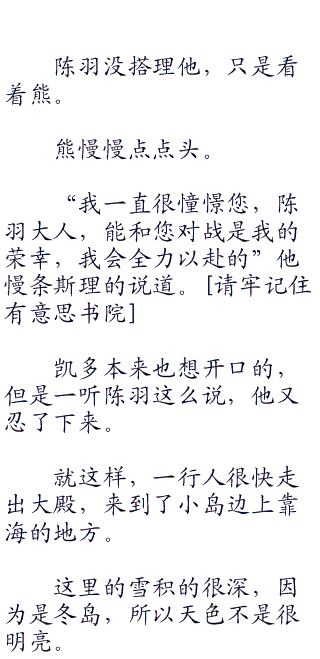 陈羽没搭理他，只是看
着熊。
熊慢慢点点头。
“我一直很憧憬您，陈
羽大人，能和您对战是我的
荣幸，我会全力以赴的”他
慢条斯理的说道。[请牢记住
有意思书院]
凯多本来也想开口的，
但是一听陈羽这么说，他又
忍了下来。
就这样，一行人很快走
出大殿，来到了小岛边上靠
海的地方。
这里的雪积的很深，因
为是冬岛，所以天色不是很
明亮。